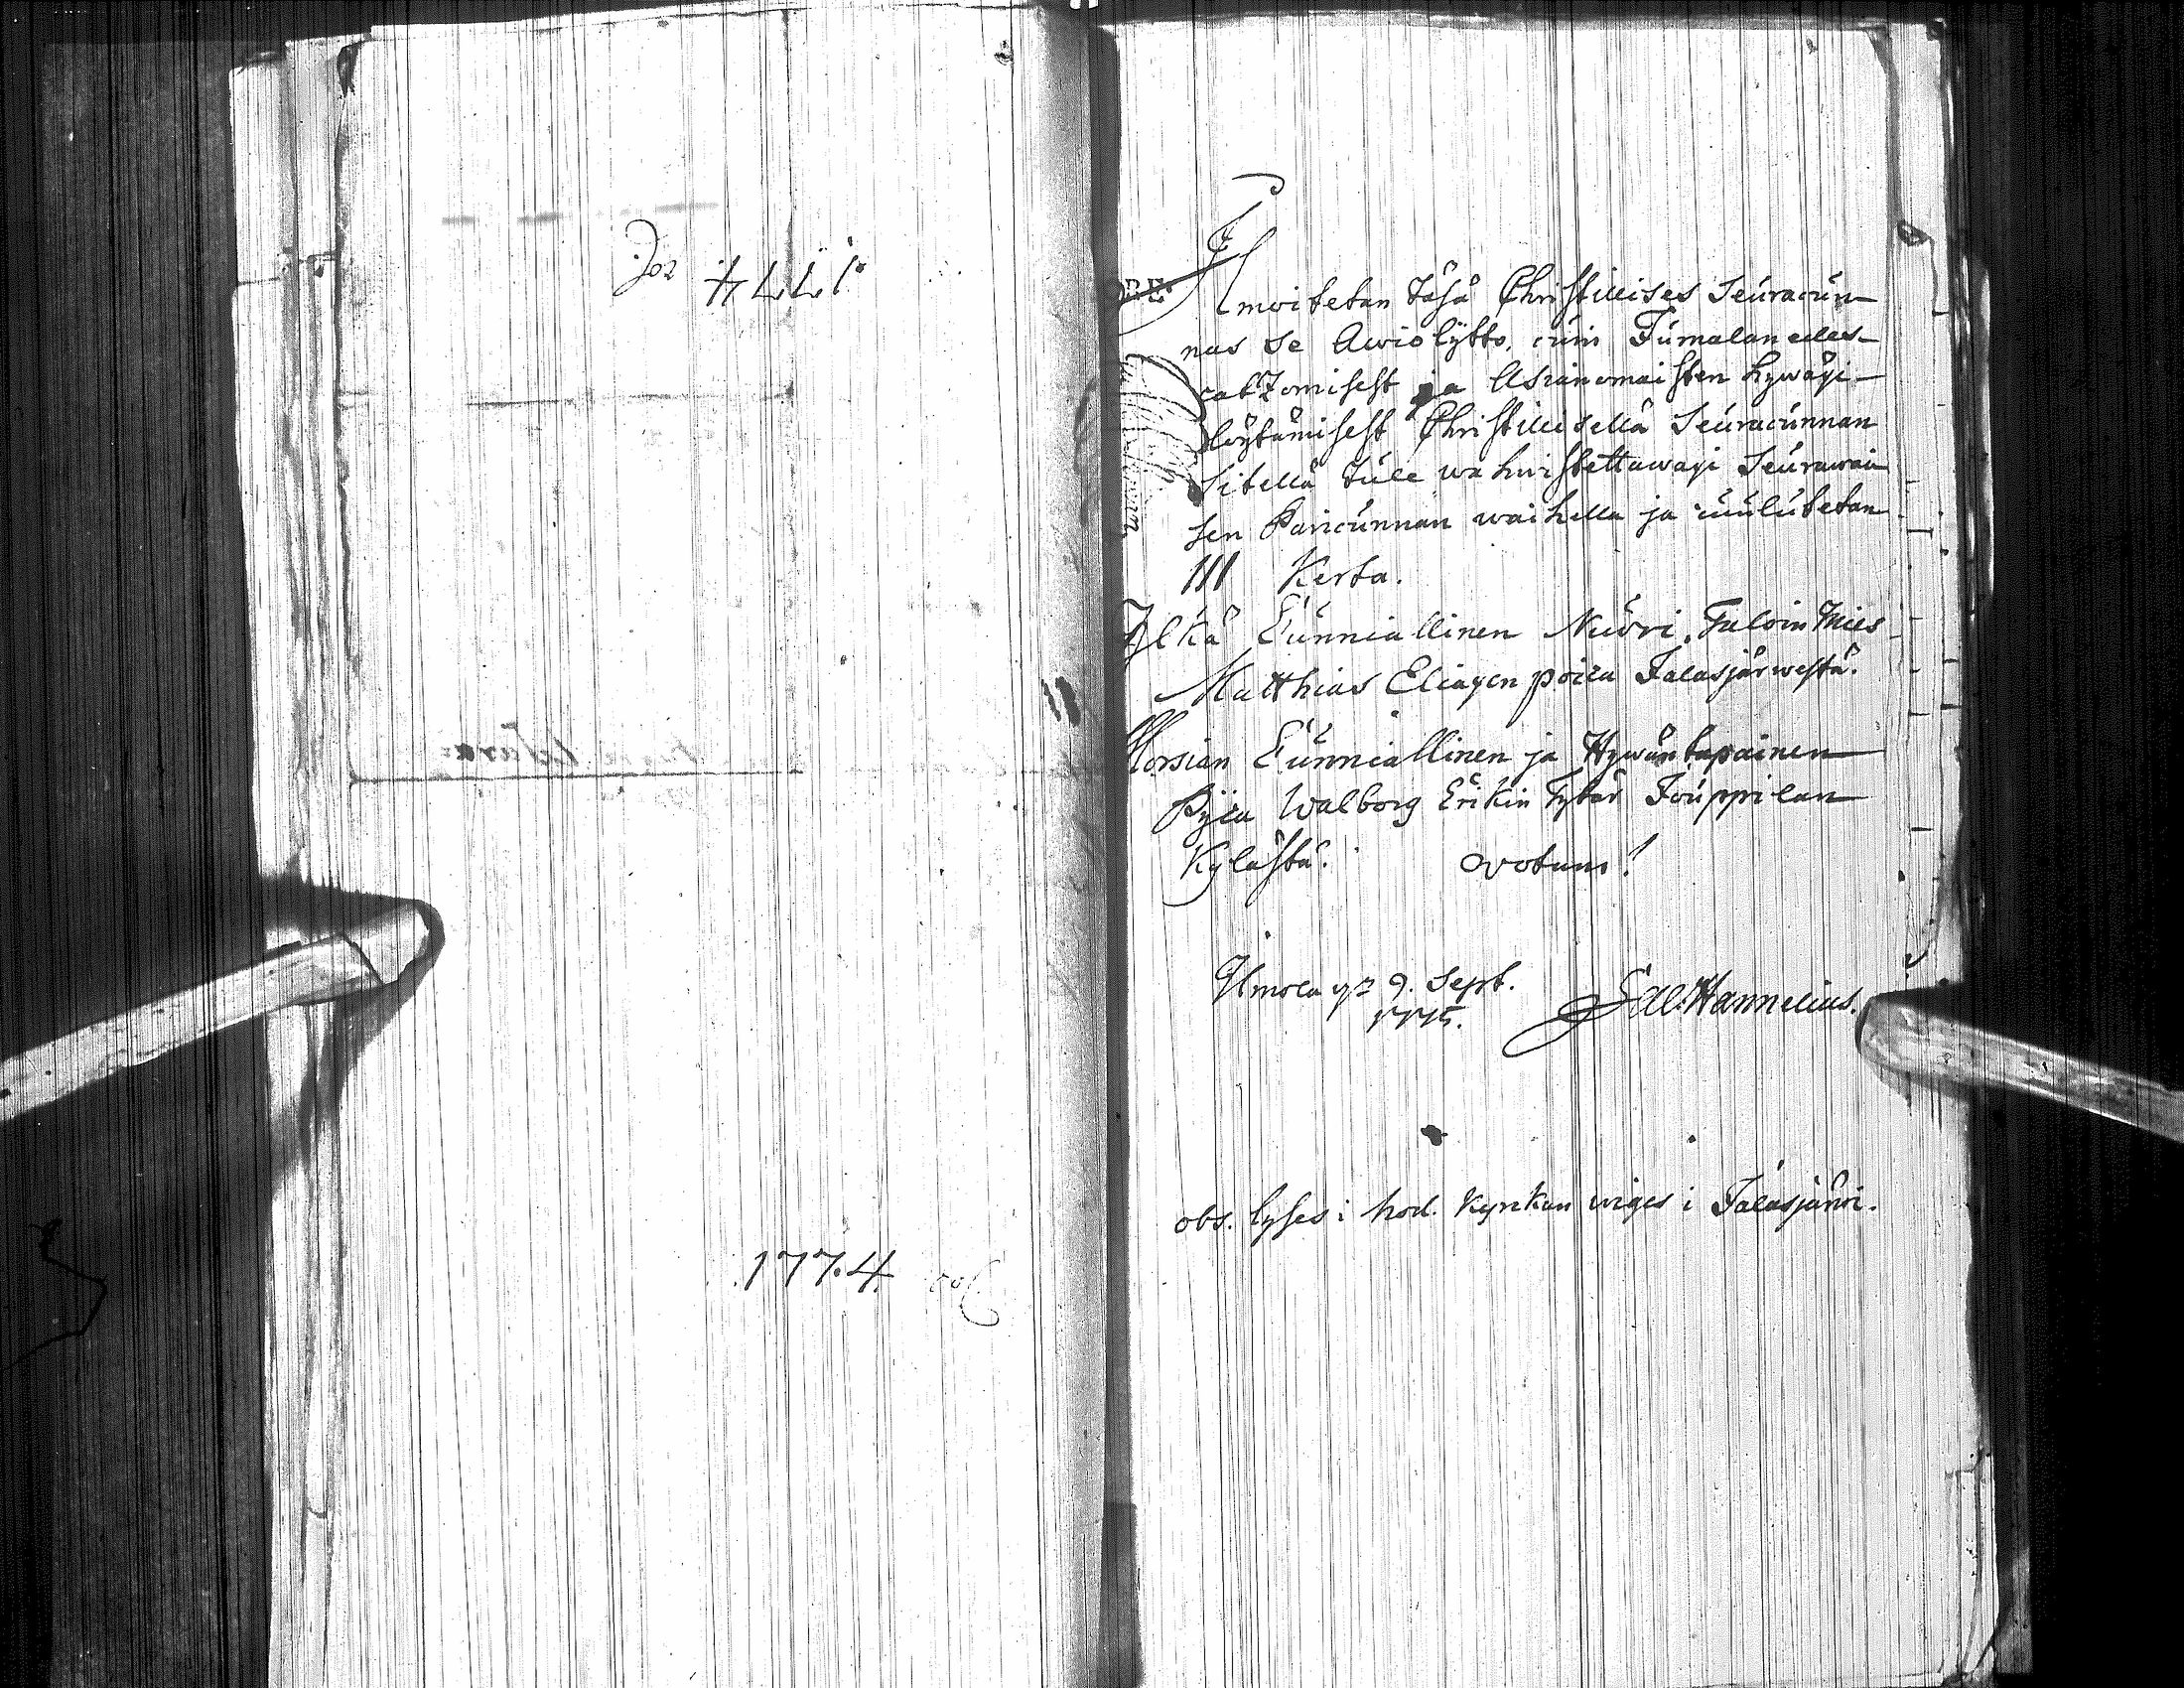 1774.
1774
Ilmoitetan täsä Christillises Seuracun-
nas se Awiolijtto, cuin Jumalan edes-
catzomisest ja Asianomaisten hywäxi-
löytämisest Christillisellä Seuracunnan
Sitellä tule wahwistettawaxi Seurawai
sen Paricunnan waihella ja cuulutetan
III Kerta.
Yljkä Cunniallinen Nuori Taloin Mies
Matthias Eliaxen poica Jalasjärwestä.
Morsian Cunniallinen ja Hywäntapainen
Pijca Walborg Erikin Tytär Jouppilan
Kylästä. votum!
Ilmola 9. Sept.
1775.
Hannelius.
obs. lyses i hod. Kyrkan wiges i Jalasjärwi.